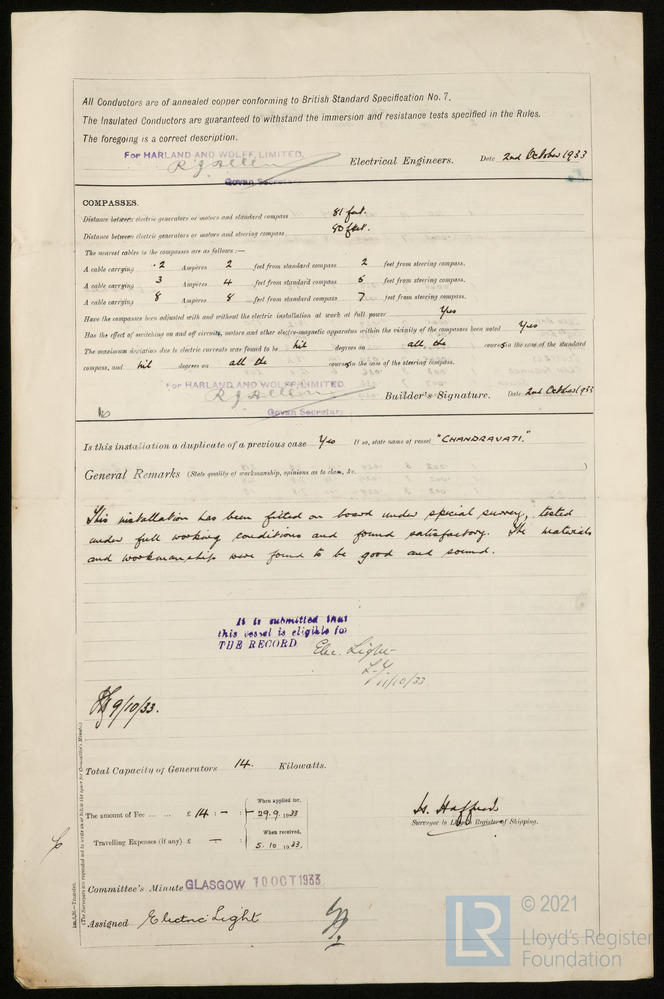 All Conductors are of annealed copper conforming to British Standard Specification No. 7.
The Insulated Conductors are guaranteed to withstand the immersion and resistance tests specified in the Rules.
The foregoing is a correct description.
For HARLAND AND WOLFF, LIMITED,
Electrical Engineers. Date 2nd October 1933
Govan Secretary
COMPASSES.
Distance between electric generators or motors and standard compass 81 feet.
Distance between electric generators or motors and steering compass 80 feet.
The nearest cables to the compasses are as follows :—
A cable carrying .2 Ampères 2 feet from standard compass 2 feet from steering compass.
A cable carrying 3 Ampères 4 feet from standard compass 5 feet from steering compass.
A cable carrying 8 Ampères 8 feet from standard compass 7 feet from steering compass.
Have the compasses been adjusted with and without the electric installation at work at full power Yes
Has the effect of switching on and off circuits, motors and other electro-magnetic apparatus within the vicinity of the compasses been noted Yes
The maximum deviation due to electric currents was found to be Nil degrees on all the courses in the case of the standard
compass, and Nil degrees on all the courses in the case of the steering compass.
For HARLAND AND WOLFF, LIMITED.
Builder's Signature. Date 2nd October 1933
Govan Secretary
Is this installation a duplicate of a previous case Yes If so, state name of vessel "CHANDRAVATI."
General Remarks (State quality of workmanship, opinions as to class, &c.)
This installation has been fitted on board under special survey, tested
under full working conditions and found satisfactory. The materials
and workmanship were found to be good and sound.
It is submitted that
this vessel is eligible for
THE RECORD. Elec. Light
11/10/33.
9/10/33.
Total Capacity of Generators 14. Kilowatts.
The amount of Fee ... ... £ 14 : – :
When applied for,
29.9.1933
Travelling Expenses (if any) £ — :
When received,
5.10.1933.
Surveyor to Lloyd's Register of Shipping.
Committee's Minute GLASGOW 10 OCT 1933
Assigned Electric Light
© 2021
LR
Lloyd's Register
Foundation